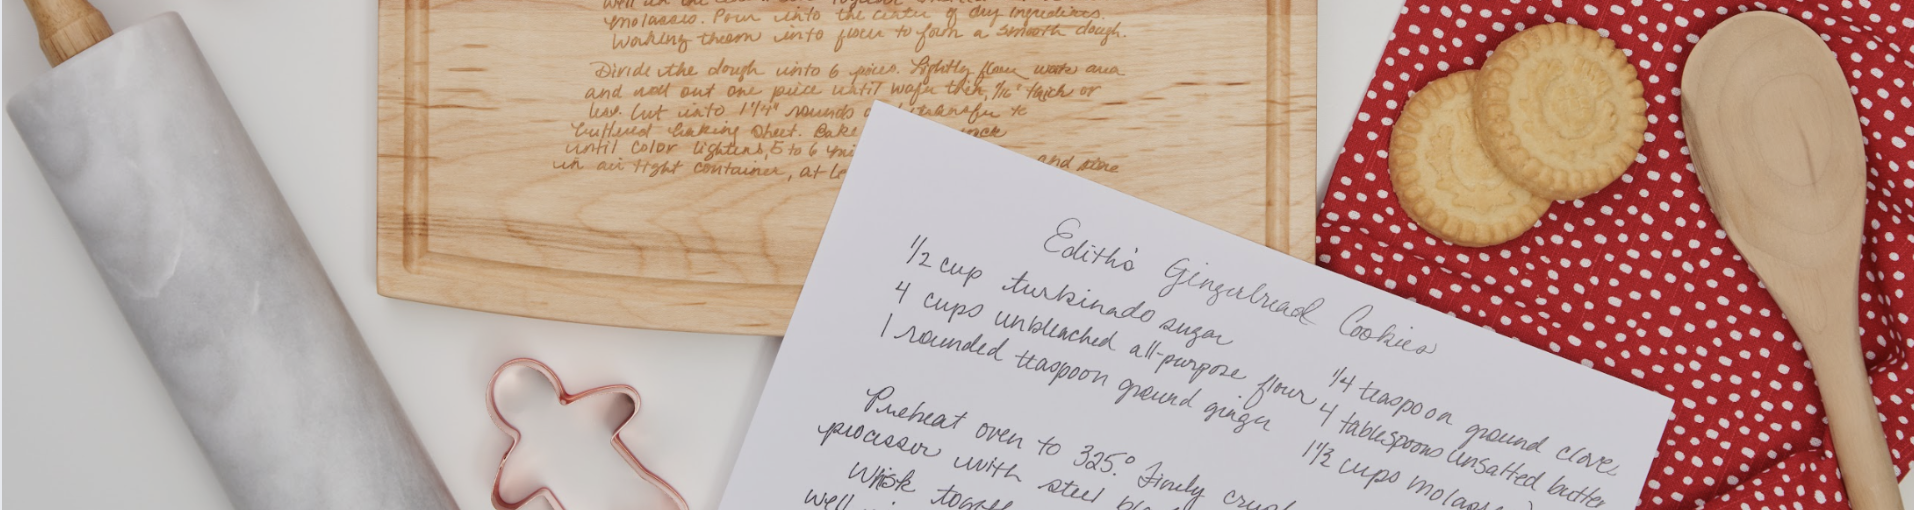 molasses. Pour into the center of dry ingredients.
Working them into flour to form a smooth dough.
Divide the dough into 6 pieces. Lightly flour work area
and roll out one piece until wafer thin, 1/16" thick or
less. Cut into 1 1/4" rounds transfer to
buttered baking sheet. Bake
until color lightens, 5 to 6
in air tight container, at and
Edith's Gingerbread Cookies
1/2 cup turbinado sugar
4 cups unbleached all-purpose flour
1 rounded teaspoon ground ginger
1/4 teaspoon ground cloves
4 tablespoons unsalted butter
1 1/2 cups
Preheat oven to 325.° Finely
processor with steel
Whisk
well